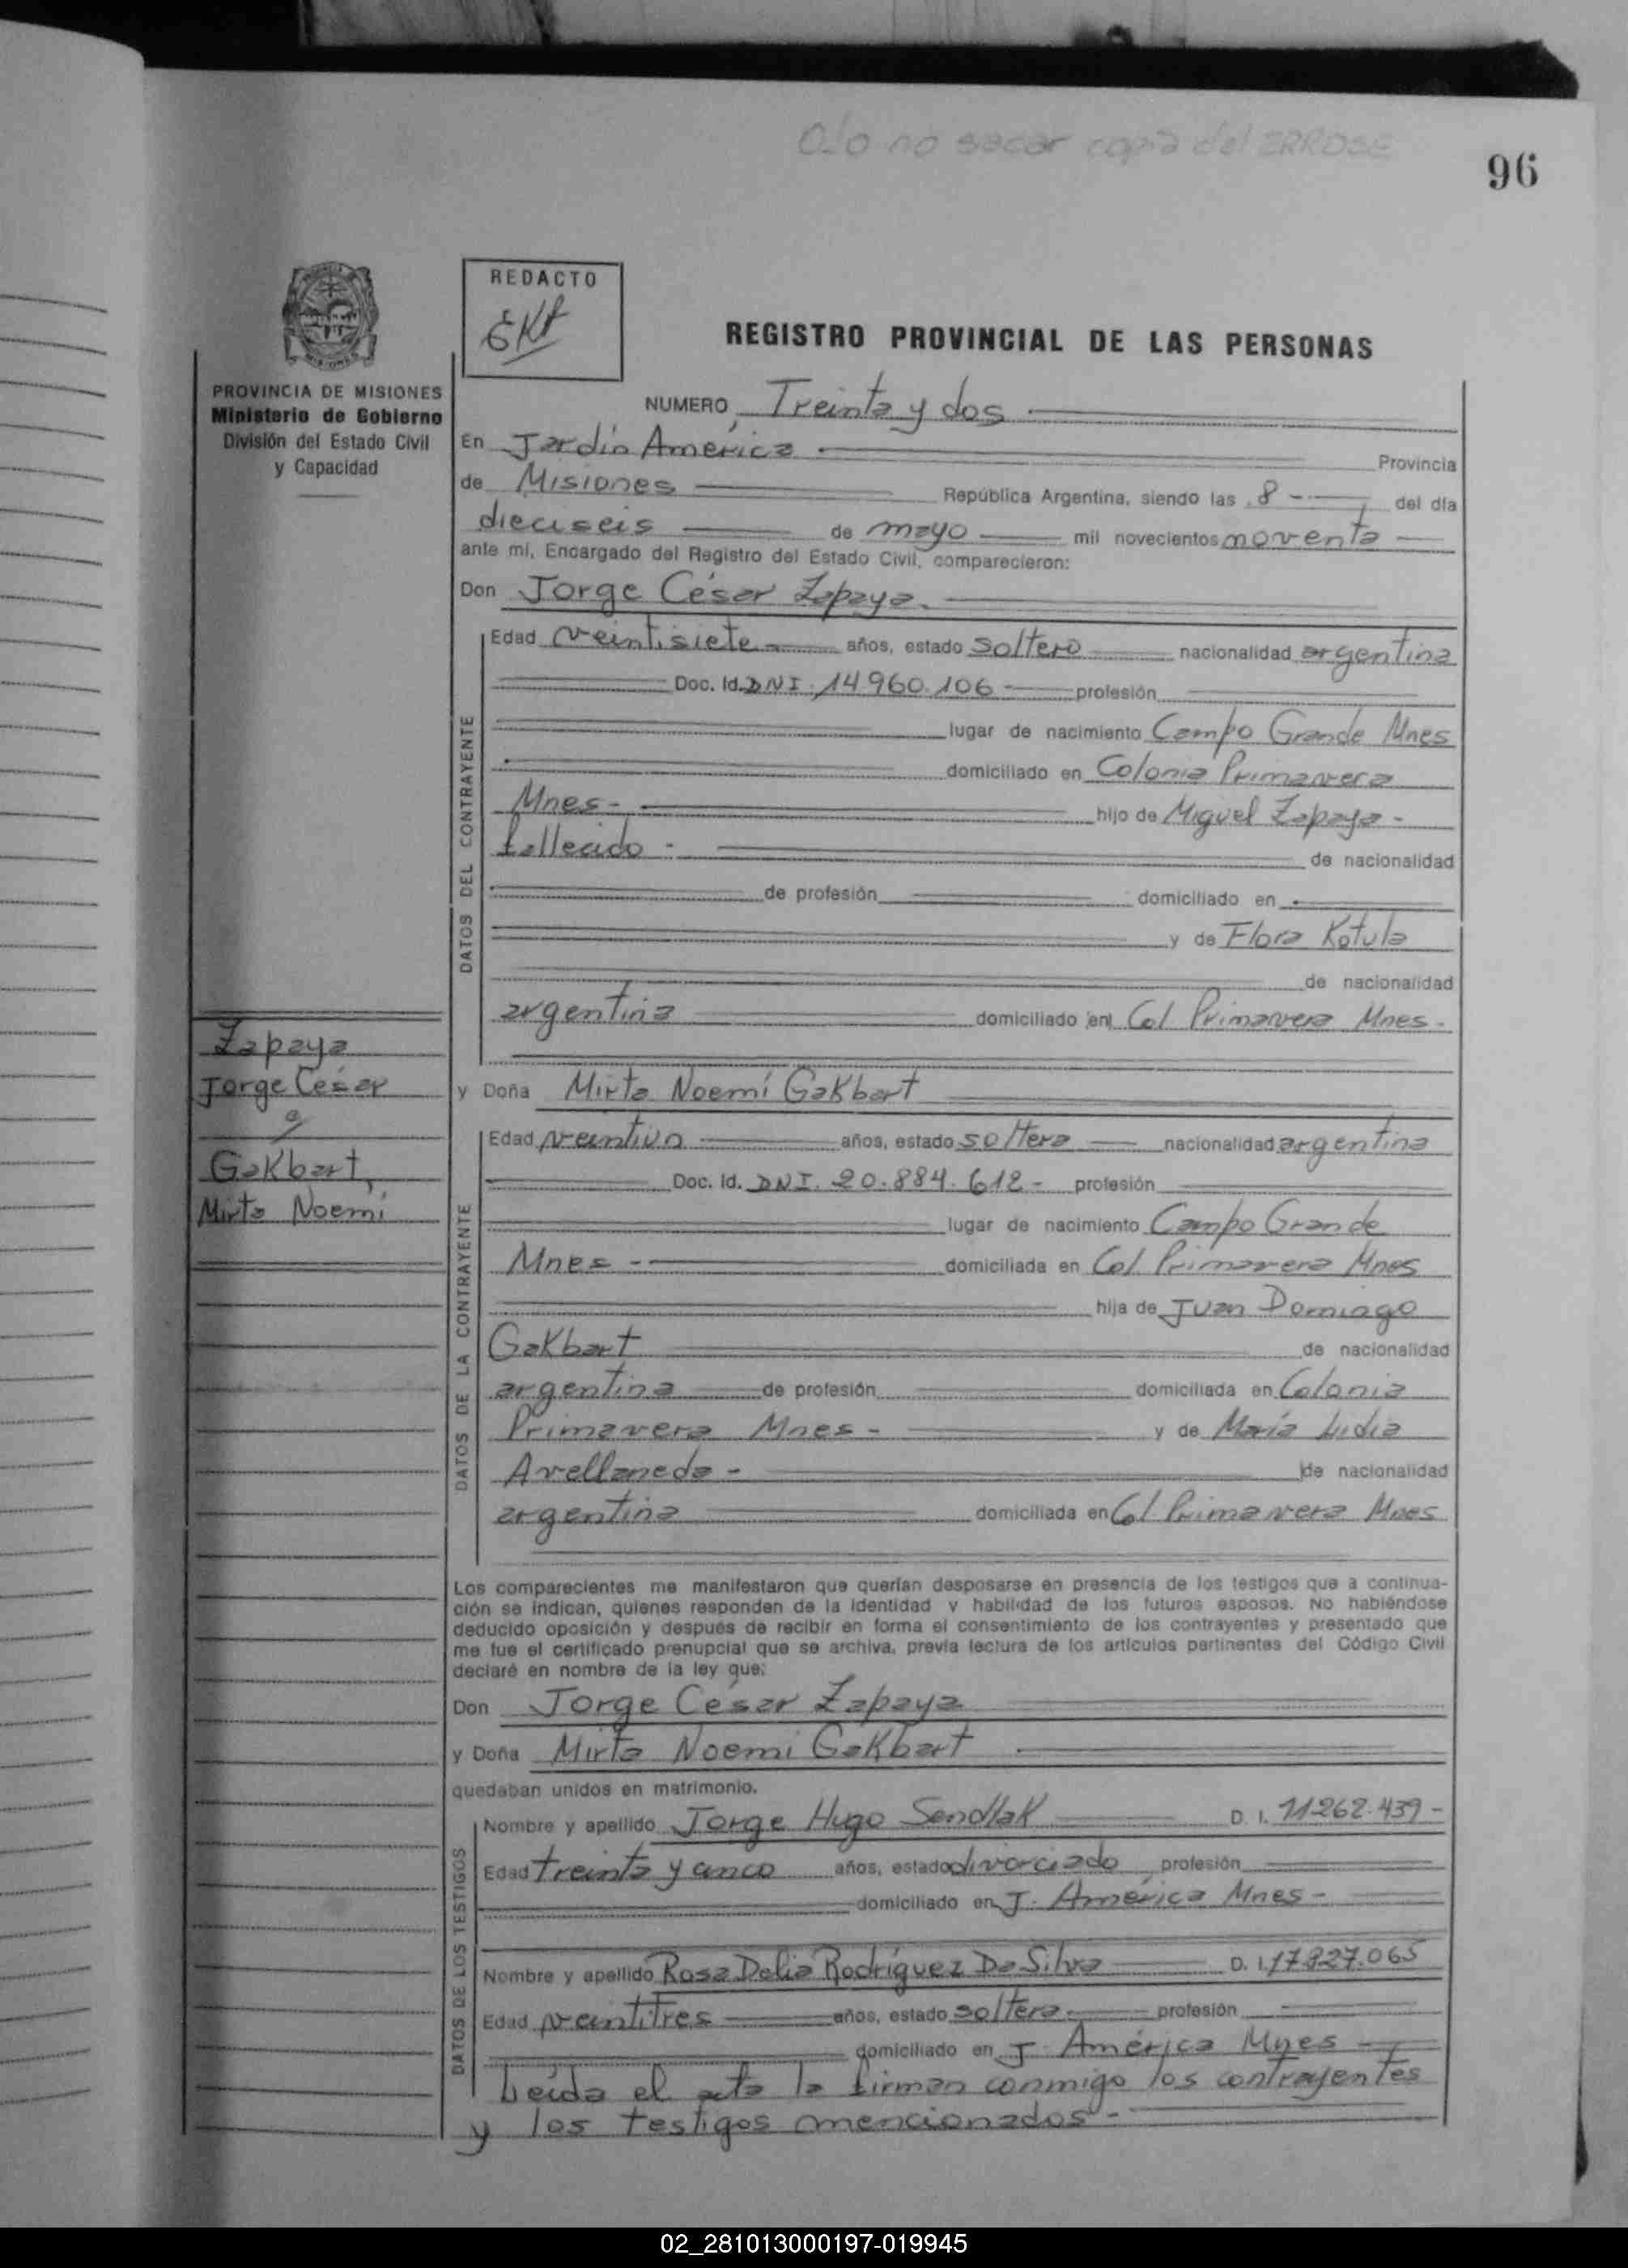 no sacar copia del
96
REDACTO
REGISTRO PROVINCIAL DE LAS PERSONAS
PROVINCIA DE MISIONES
Ministerio de Gobierno
División del Estado Civil
y Capacidad
NUMERO Treinta y dos
En Jardín América Provincia
de Misiones República Argentina, siendo las 8 del día
dieciseis de mayo mil novecientos noventa
ante mí, Encargado del Registro del Estado Civil, comparecieron:
Don Jorge César Zapaya
DATOS DEL CONTRAYENTE
Edad veintisiete años, estado soltero nacionalidad argentina
Doc. Id. DNI. 14.960.106 profesión
lugar de nacimiento Campo Grande Mnes
domiciliado en Colonia Primavera
Mnes- hijo de Miguel Zapaya-
fallecido- de nacionalidad
de profesión domiciliado en
y de Flora Kotula
de nacionalidad
argentina domiciliado en Col Primavera Mnes-
Zapaya
Jorge César
c/
Gakbart,
Mirta Noemí
y Doña Mirta Noemí Gakbart
DATOS DE LA CONTRAYENTE
Edad veintiun años, estado soltera nacionalidad argentina
Doc. Id. DNI. 20.884.612- profesión
lugar de nacimiento Campo Grande
Mnes- domiciliada en Col Primavera Mnes
hija de Juan Domingo
Gakbart de nacionalidad
argentina de profesión domiciliada en Colonia
Primavera Mnes- y de María Lidia
Avellaneda- de nacionalidad
argentina domiciliada en Col Primavera Mnes
Los comparecientes me manifestaron que querían desposarse en presencia de los testigos que a continua-
ción se indican, quienes responden de la identidad y habilidad de los futuros esposos. No habiéndose
deducido oposición y después de recibir en forma el consentimiento de los contrayentes y presentado que
me fue el certificado prenupcial que se archiva, previa lectura de los artículos pertinentes del Código Civil
declaré en nombre de la ley que:
Don Jorge César Zapaya
y Doña Mirta Noemi Gakbart
quedaban unidos en matrimonio.
DATOS DE LOS TESTIGOS
Nombre y apellido Jorge Hugo Sendlak D. I. 11.262.439-
Edad treinta y cinco años, estado divorciado profesión
domiciliado en J. América Mnes-
Nombre y apellido Rosa Delia Rodríguez Da Silva D. I. 17.827.065
Edad veintitres años, estado soltera profesión
domiciliado en J. América Mnes
Leída el acta la firman conmigo los contrayentes
y los testigos mencionados-
02_281013000197-019945